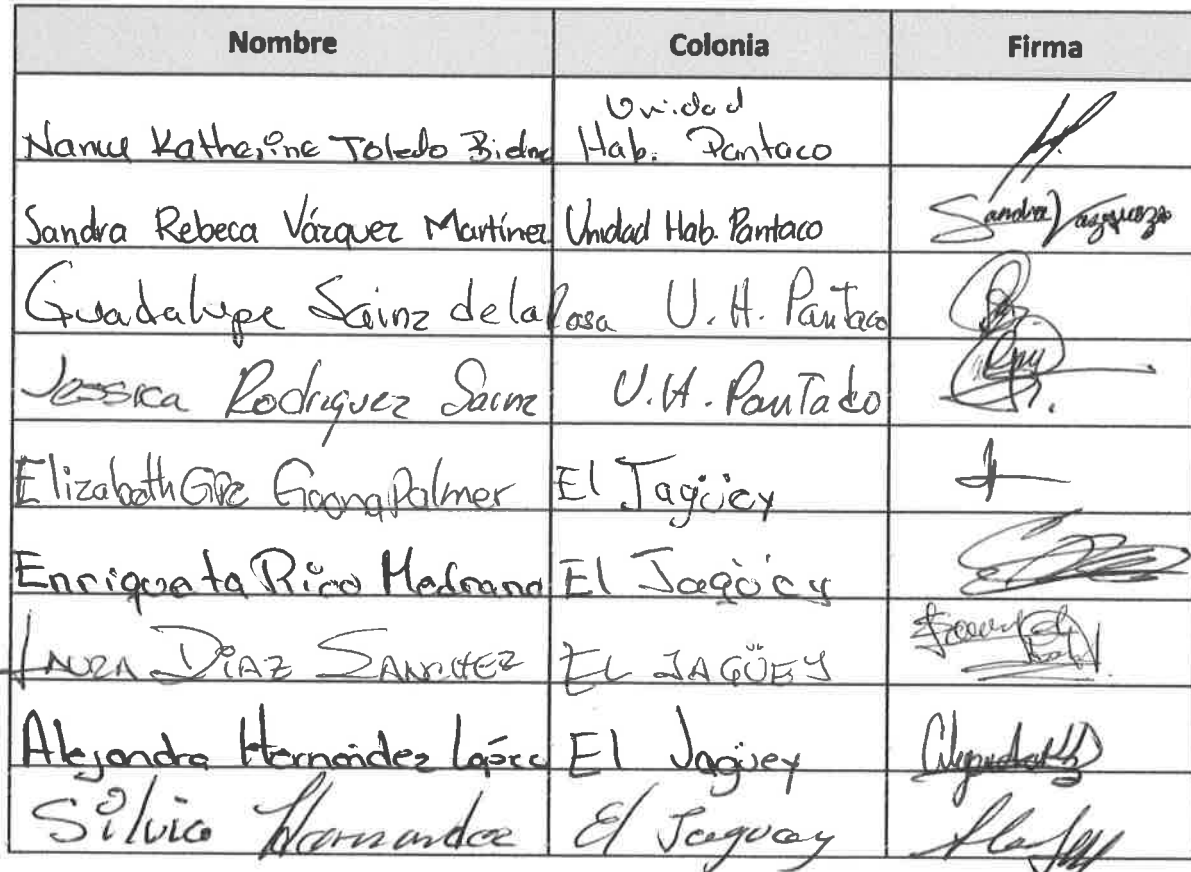 Nombre Colonia Firma
Unidad
Nancy Katherine Toledo Hab. Pantaco
Sandra Rebeca Vázquez Martínez Unidad Hab. Pantaco Sandra Vazquez
Guadalupe Sainz de la Rosa U. H. Pantaco
Jessica Rodriguez Sainz U.H. Pantaco
Elizabeth Gpe Gaona Palmer El Jagüey
Enriqueta Rico Medrano El Jagüey
LAURA DIAZ SANCHEZ EL JAGÜEY
Alejandra Hernández López El Jagüey
Silvia Hernandez El Jaguey